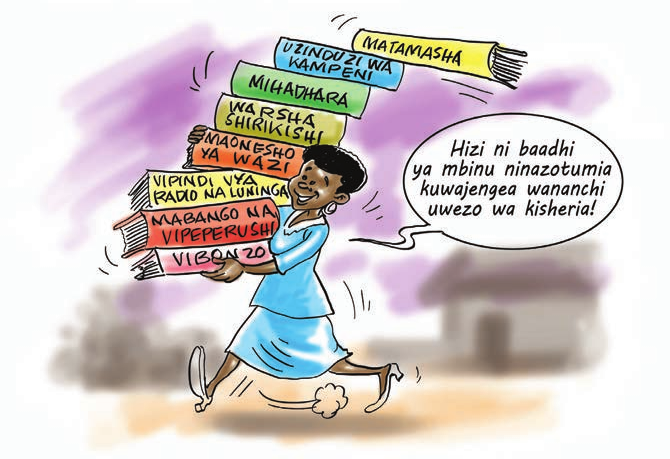 MATAMASHA
UZINDUZI WA
KAMPENI
MIHADHARA
WARSHA
SHIRIKISHI
MAONESHO
YA WAZI
VIPINDI VYA
RADIO NA LUNINGA
MABANGO NA
VIPEPERUSHI
VIBONZO
Hizi ni baadhi
ya mbinu ninazotumia
kuwajengea wananchi
uwezo wa kisheria!